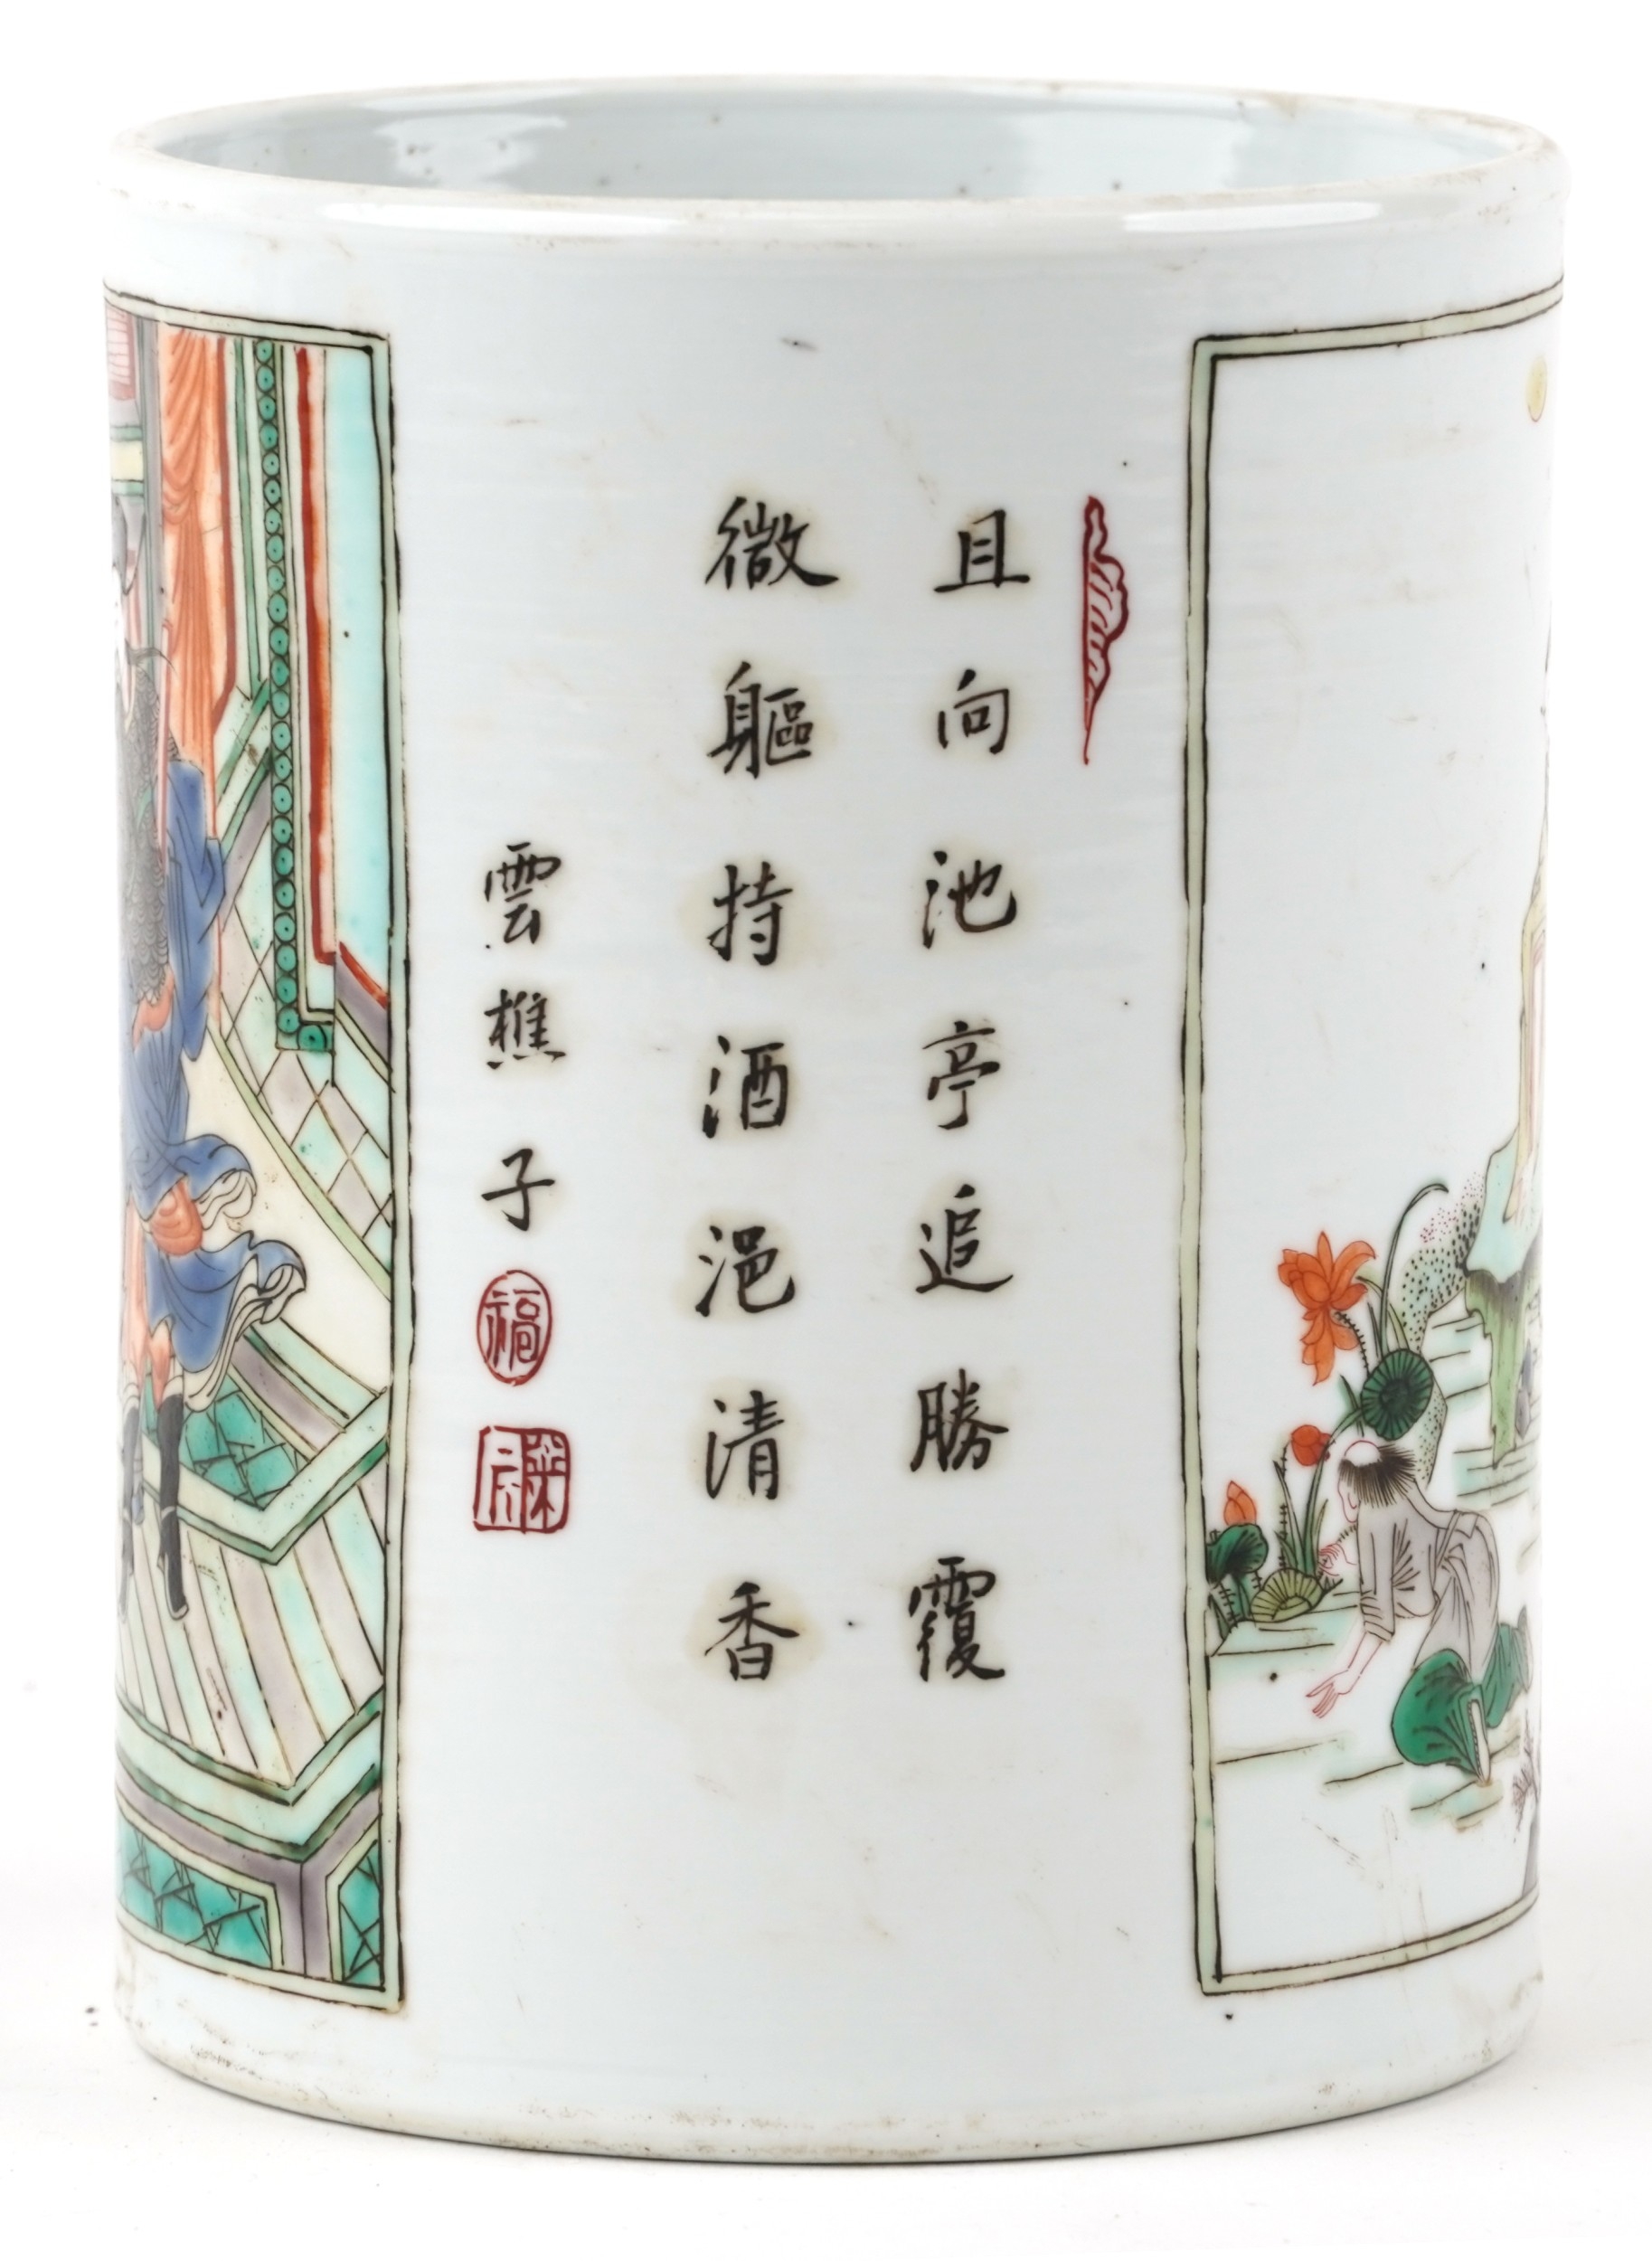 且向池亭追勝覆
微軀持酒浥清香
雲樵子
福